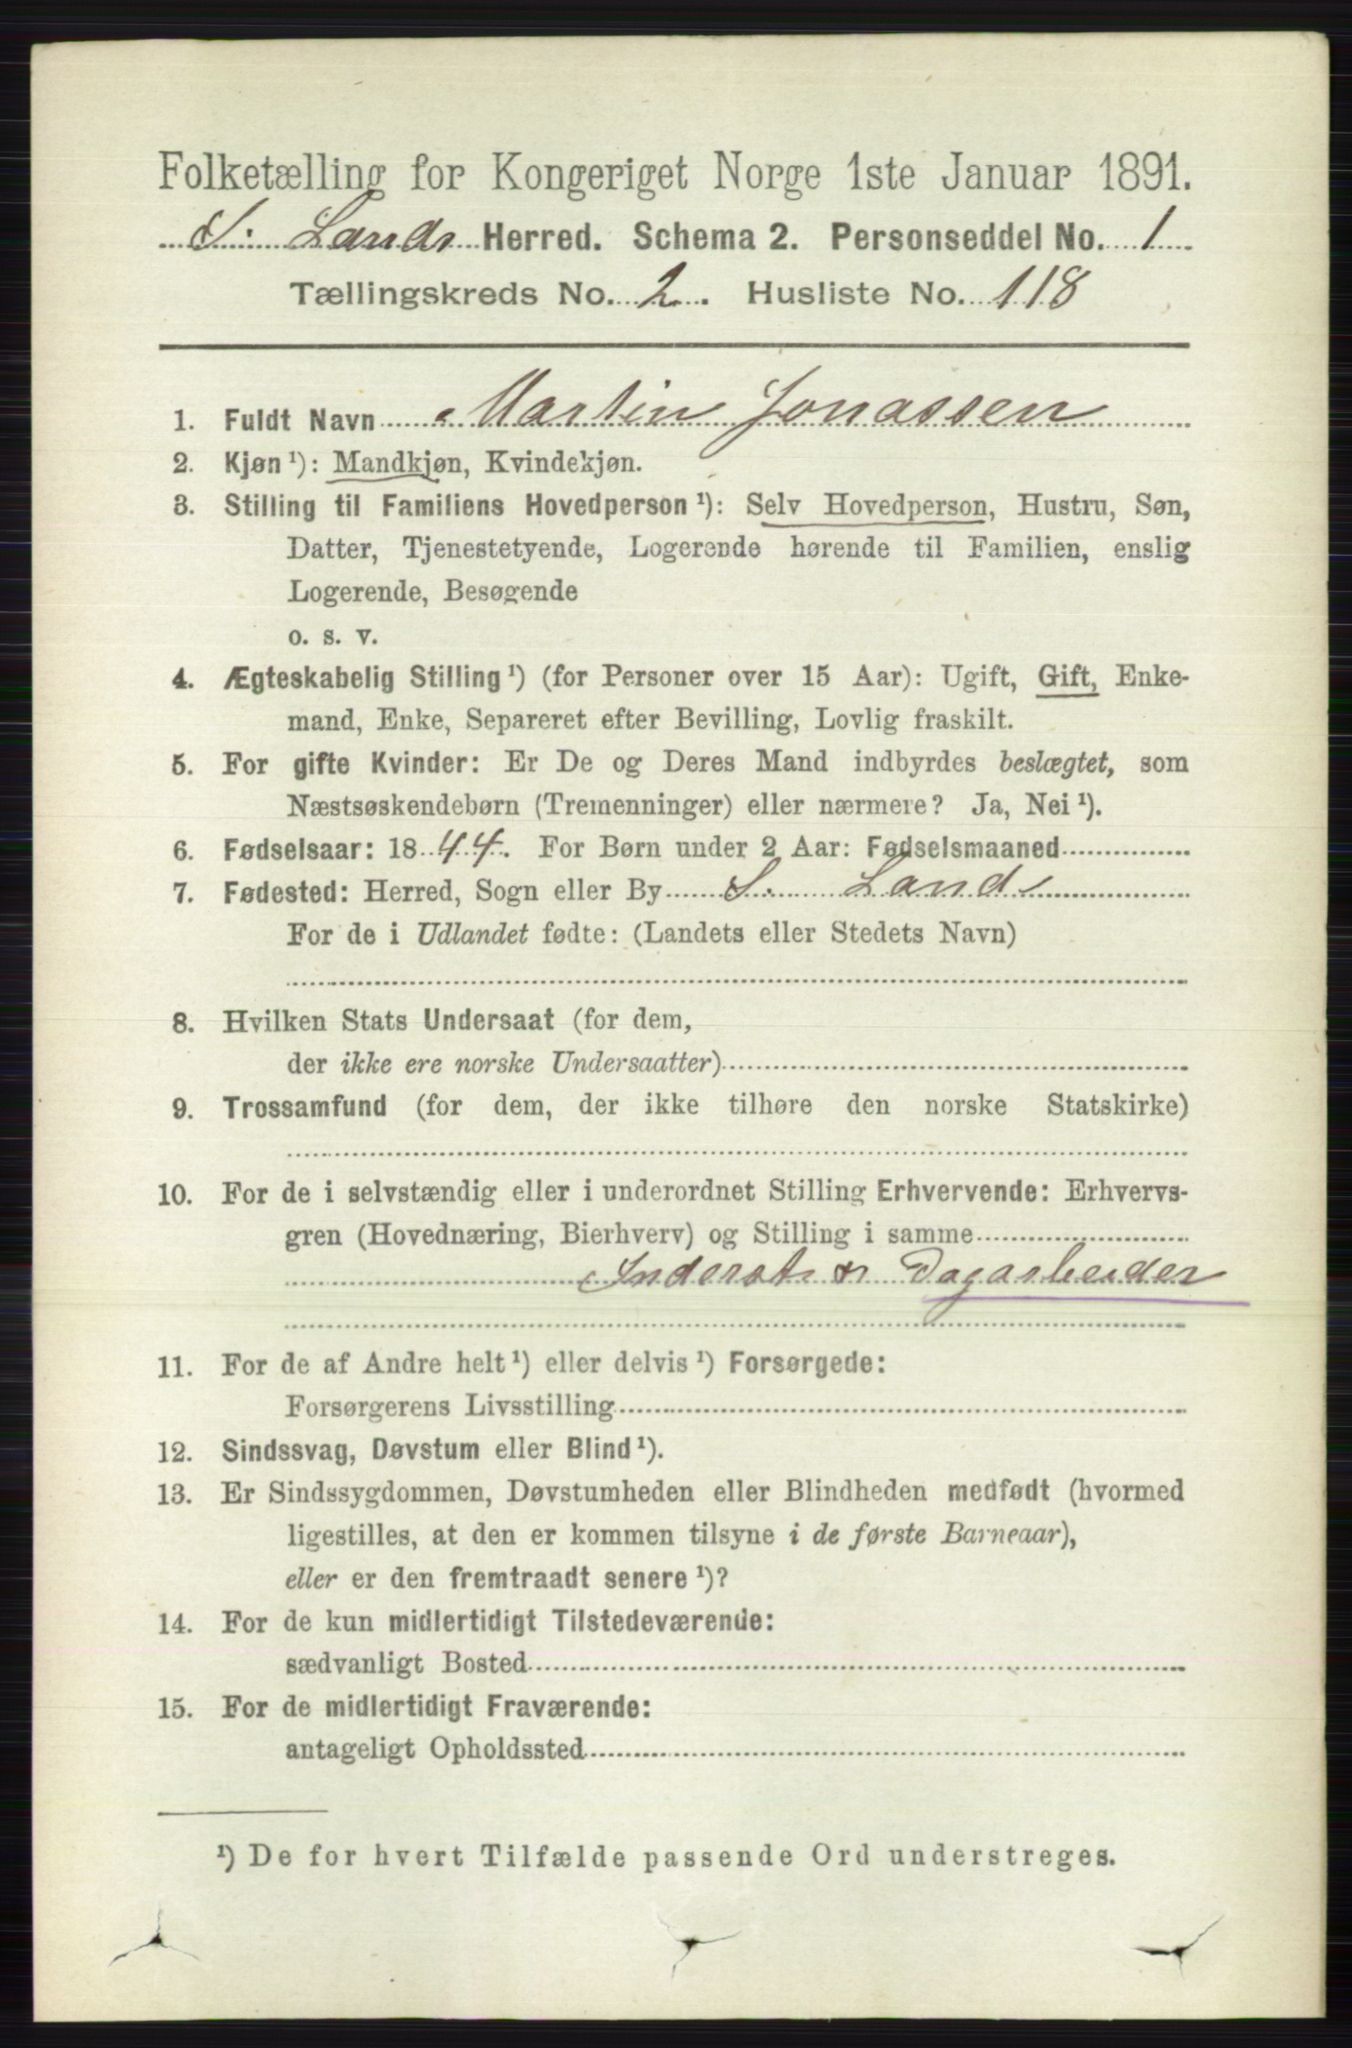 Folketælling for Kongeriget Norge 1ste Januar 1891.
S. Lands Herred. Schema 2. Personseddel No. 1
Tællingskreds No. 2. Husliste No. 118
1. Fuldt Navn Martin Jonassen
2. Kjøn ¹): Mandkjøn, Kvindekjøn.
3. Stilling til Familiens Hovedperson ¹): Selv Hovedperson, Hustru, Søn,
Datter, Tjenestetyende, Logerende hørende til Familien, enslig
Logerende, Besøgende
o. s. v.
4. Ægteskabelig Stilling ¹) (for Personer over 15 Aar): Ugift, Gift, Enke-
mand, Enke, Separeret efter Bevilling, Lovlig fraskilt.
5. For gifte Kvinder: Er De og Deres Mand indbyrdes beslægtet, som
Næstsøskendebørn (Tremenninger) eller nærmere? Ja, Nei ¹).
6. Fødselsaar: 1844. For Børn under 2 Aar: Fødselsmaaned
7. Fødested: Herred, Sogn eller By S. Land
For de i Udlandet fødte: (Landets eller Stedets Navn)
8. Hvilken Stats Undersaat (for dem,
der ikke ere norske Undersaatter)
9. Trossamfund (for dem, der ikke tilhøre den norske Statskirke)
10. For de i selvstændig eller i underordnet Stilling Erhvervende: Erhvervs-
gren (Hovednæring, Bierhverv) og Stilling i samme
Inderst & Dagarbeider
11. For de af Andre helt ¹) eller delvis ¹) Forsørgede:
Forsørgerens Livsstilling
12. Sindssvag, Døvstum eller Blind ¹).
13. Er Sindssygdommen, Døvstumheden eller Blindheden medfødt (hvormed
ligestilles, at den er kommen tilsyne i de første Barneaar),
eller er den fremtraadt senere ¹)?
14. For de kun midlertidigt Tilstedeværende:
sædvanligt Bosted
15. For de midlertidigt Fraværende:
antageligt Opholdssted
¹) De for hvert Tilfælde passende Ord understreges.